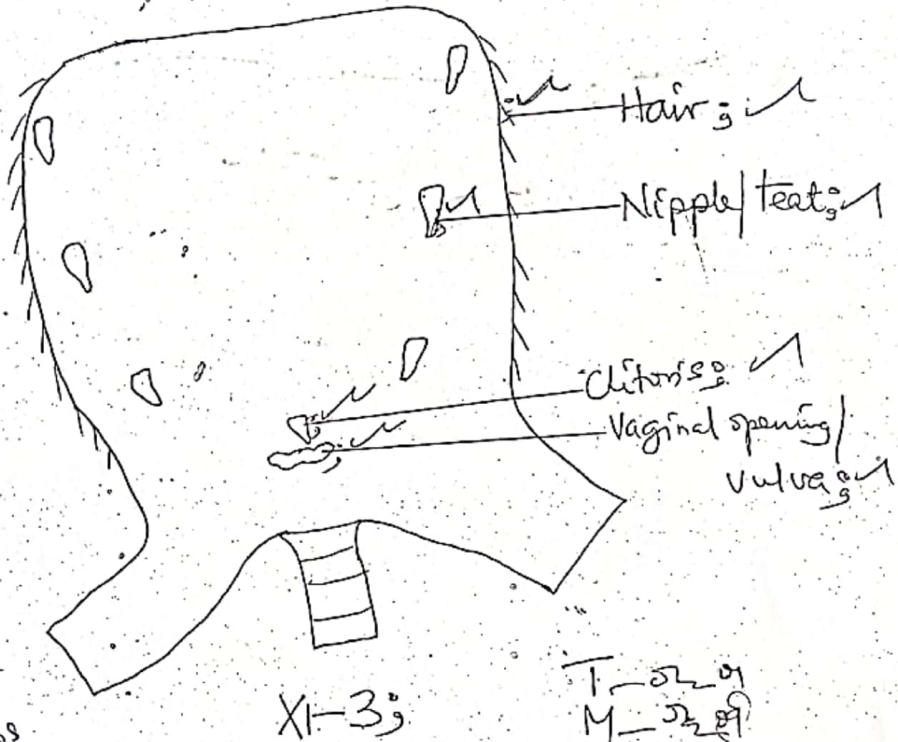 Hair;
Nipple/teat;
Clitoris;
Vaginal opening/
vulva;
X1-3;